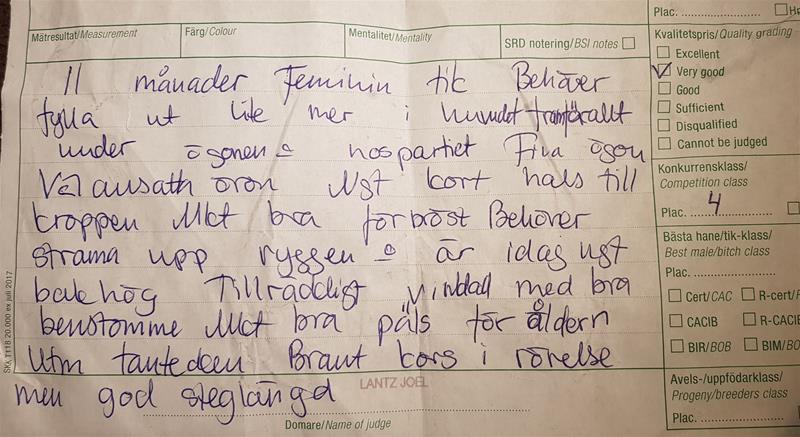 Plac.
Mätresultat/Measurement Färg/Colour Mentalitet/Mentality SRD notering/BSI notes
Kvalitetspris/Quality grading
Excellent
Very good
Good
Sufficient
Disqualified
Cannot be judged
11 månader Feminin tik Behöver
fylla ut lite mer i huvudet framförallt
under ögonen & nospartiet Fina ögon
Väl ansatta öron Ngt kort hals till
kroppen Mkt bra förbröst Behöver
strama upp ryggen & är idag ngt
bakhög Tillräckligt vinklad med bra
benstomme Mkt bra päls för åldern
Utm tanteden Brant kors i rörelse
men god steglängd
Konkurrensklass/
Competition class
Plac. 4
Bästa hane/tik-klass/
Best male/bitch class
Plac.
Cert/CAC R-cert/
CACIB R-CACIB
BIR/BOB BIM/BO
Avels-/uppfödarklass/
Progeny/breeders class
Plac.
LANTZ JOEL
Domare/Name of judge
SKK T11B 20.000 ex juli 2017